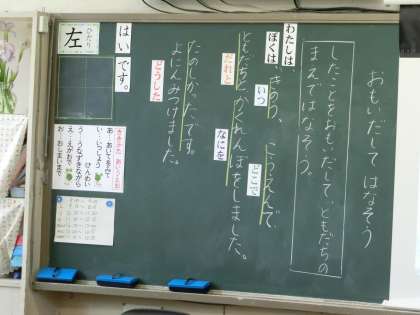 おもいだして はなそう
したことをおもいだして、ともだちの
まえではなそう。
わたしは、
ぼくは、きのう、こうえんで
いつ
どこで
ともだちとかくれんぼをしました。
だれと
なにを
よにんみつけました。
どうした
たのしかったです。
はい、です。
ひだり
左
ききかた あいうえお
あ：あいてを見て
い：いっしょうけんめい
う：うなずきながら
え：えがおで
お：おしまいまで